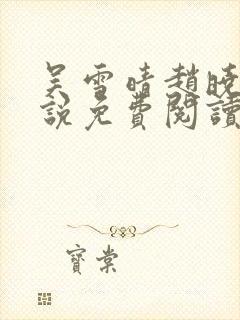 吴雪晴趙曉
說免費閱讀
寶棠